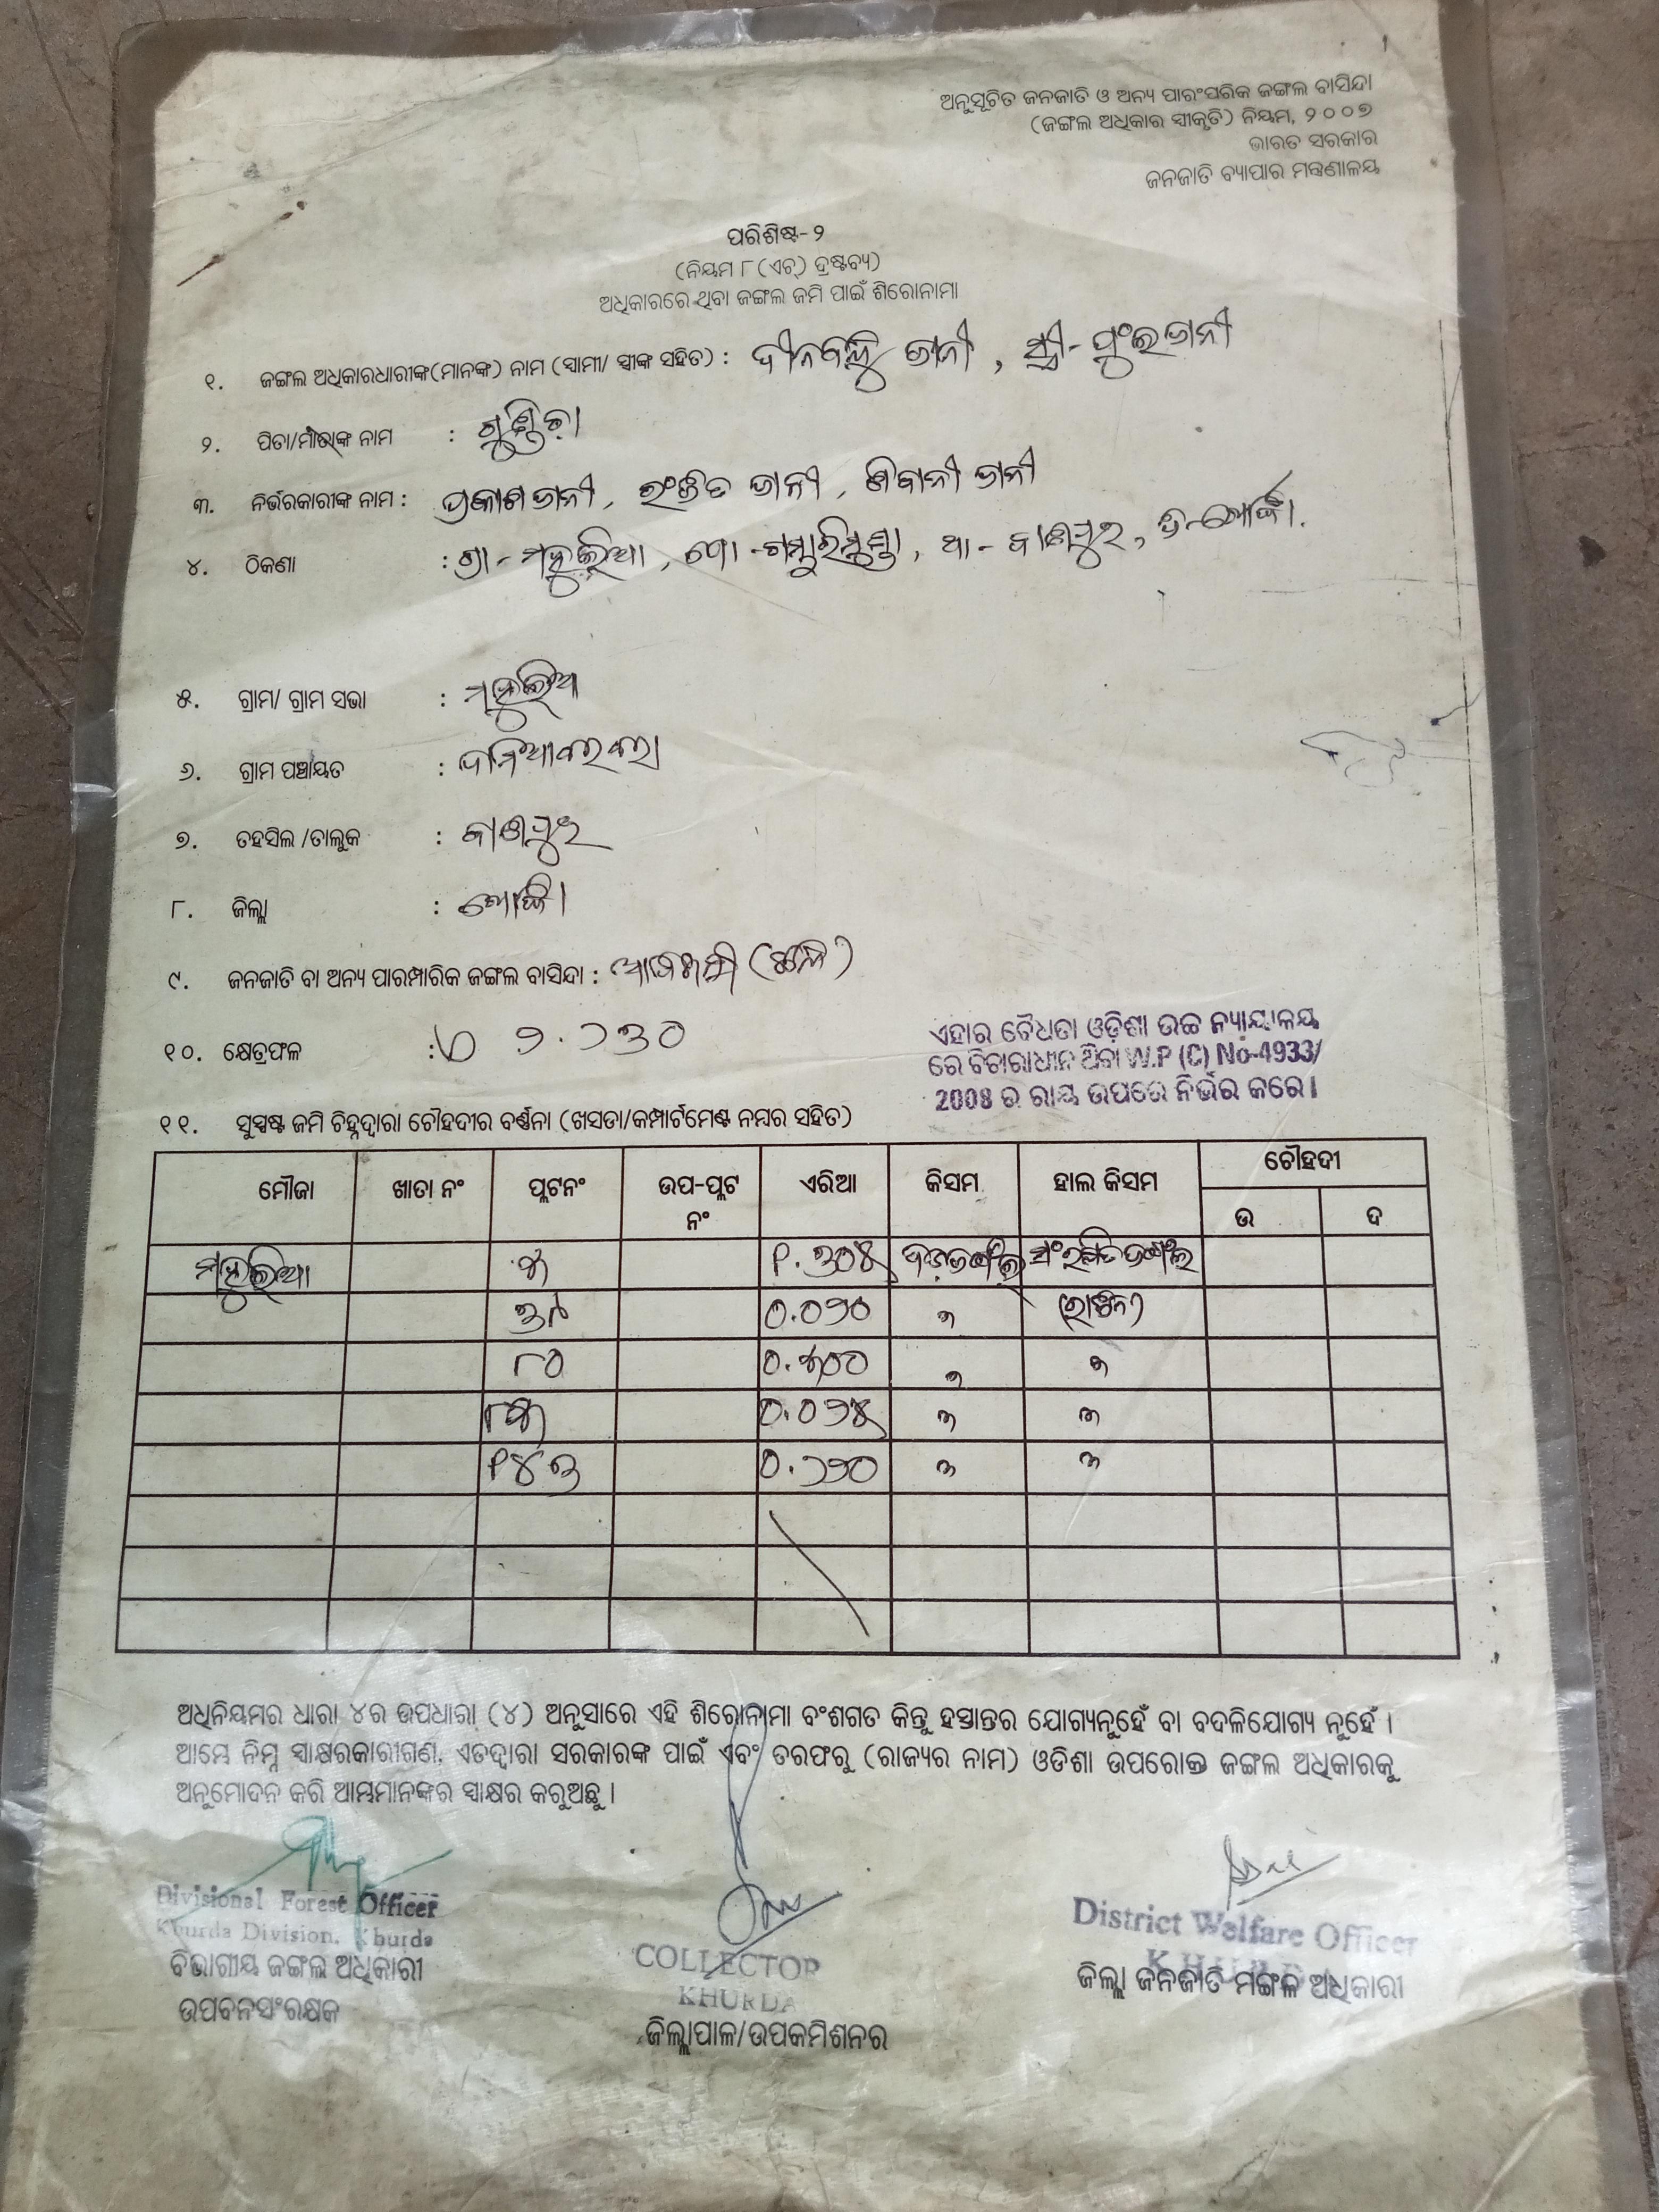 ଅନୁସୂଚିତ ଜନଜାତି ଓ ଅନ୍ୟ ପାରଂପରିକ ଜଙ୍ଗଲ ବାସିନ୍ଦା
(ଜଙ୍ଗଲ ଅଧିକାର ସ୍ୱୀକୃତି) ନିୟମ, ୨୦୦୭
ଭାରତ ସରକାର
ଜନଜାତି ବ୍ୟାପାର ମନ୍ତ୍ରଣାଳୟ
ପରିଶିଷ୍ଟ-୨
(ନିୟମ ୮ (ଏଚ୍) ଦ୍ରଷ୍ଟବ୍ୟ)
ଅଧିକାରରେ ଥିବା ଜଙ୍ଗଲ ଜମି ପାଇଁ ଶିରୋନାମା
୧. ଜଙ୍ଗଲ ଅଧିକାରଧାରୀଙ୍କ(ମାନଙ୍କ) ନାମ (ସ୍ୱାମୀ/ ସ୍ତ୍ରୀଙ୍କ ସହିତ) : ଦୀନବନ୍ଧୁ ଭାନୀ, ସ୍ତ୍ରୀ-
୨. ପିତା/ମାତାଙ୍କ ନାମ : ଗୁଣ୍ଡିଚା
୩. ନିର୍ଭରକାରୀଙ୍କ ନାମ : ପ୍ରକାଶ ଭାନୀ, ରଂଜିତ ଭାନୀ, ଶିବାନୀ ଭାନୀ
୪. ଠିକଣା : ଗ୍ରା- ମହୁଲିଆ, ପୋ- , ଥା- ବାଣପୁର, ଜି-ଖୋର୍ଦ୍ଧା.
୫. ଗ୍ରାମ/ ଗ୍ରାମ ସଭା : ମହୁଲିଆ
୬. ଗ୍ରାମ ପଞ୍ଚାୟତ :
୭. ତହସିଲ /ତାଲୁକ : ବାଣପୁର
୮. ଜିଲ୍ଲା : ଖୋର୍ଦ୍ଧା
୯. ଜନଜାତି ବା ଅନ୍ୟ ପାରମ୍ପାରିକ ଜଙ୍ଗଲ ବାସିନ୍ଦା :
୧୦. କ୍ଷେତ୍ରଫଳ : ୨.୨୩୦
ଏହାର ବୈଧତା ଓଡ଼ିଶା ଉଚ୍ଚ ନ୍ୟାୟାଳୟ
ରେ ବିଚାରାଧୀନ ଥିବା W.P (C) No-4933/
2008 ର ରାୟ ଉପରେ ନିର୍ଭର କରେ।
୧୧. ସୁସ୍ପଷ୍ଟ ଜମି ଚିହ୍ନଦ୍ୱାରା ଚୌହଦୀର ବର୍ଣ୍ଣନା (ଖସଡା/କମ୍ପାର୍ଟମେଣ୍ଟ ନମ୍ବର ସହିତ)
ମୌଜା ଖାତା ନଂ ପ୍ଲଟନଂ ଉପ-ପ୍ଲଟ ନଂ ଏରିଆ କିସମ ହାଲ କିସମ ଚୌହଦୀ
ଉ ଦ
ମହୁଲିଆ ୫ ୧.୬୦୫ ସଂରକ୍ଷିତ ଜଙ୍ଗଲ
୦.୦୨୦ "
୮୦ ୦.୫୦୦ " "
୮୫ ୦.୦୨୫ " "
୧୪୬ " "
ଅଧିନିୟମର ଧାରା ୪ର ଉପଧାରା (୪) ଅନୁସାରେ ଏହି ଶିରୋନାମା ବଂଶଗତ କିନ୍ତୁ ହସ୍ତାନ୍ତର ଯୋଗ୍ୟନୁହେଁ ବା ବଦଳିଯୋଗ୍ୟ ନୁହେଁ।
ଆମ୍ଭେ ନିମ୍ନ ସ୍ୱାକ୍ଷରକାରୀଗଣ, ଏତଦ୍ୱାରା ସରକାରଙ୍କ ପାଇଁ ଏବଂ ତରଫରୁ (ରାଜ୍ୟର ନାମ) ଓଡିଶା ଉପରୋକ୍ତ ଜଙ୍ଗଲ ଅଧିକାରକୁ
ଅନୁମୋଦନ କରି ଆମ୍ଭମାନଙ୍କର ସ୍ୱାକ୍ଷର କରୁଅଛୁ।
Divisional Forest Officer
Khurda Division, Khurda
ବିଭାଗୀୟ ଜଙ୍ଗଲ ଅଧିକାରୀ
ଉପବନସଂରକ୍ଷକ
COLLECTOR
KHURDA
ଜିଲ୍ଲାପାଳ/ଉପକମିଶନର
District Welfare Officer
KHURDA
ଜିଲ୍ଲା ଜନଜାତି ମଙ୍ଗଳ ଅଧିକାରୀ